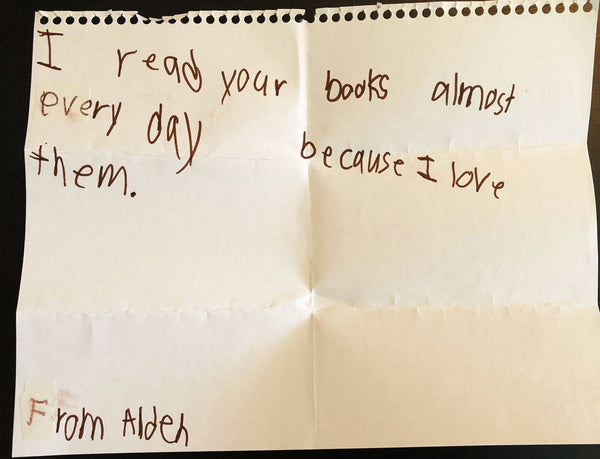 I read your books almost
every day because I love
them.
From Alden